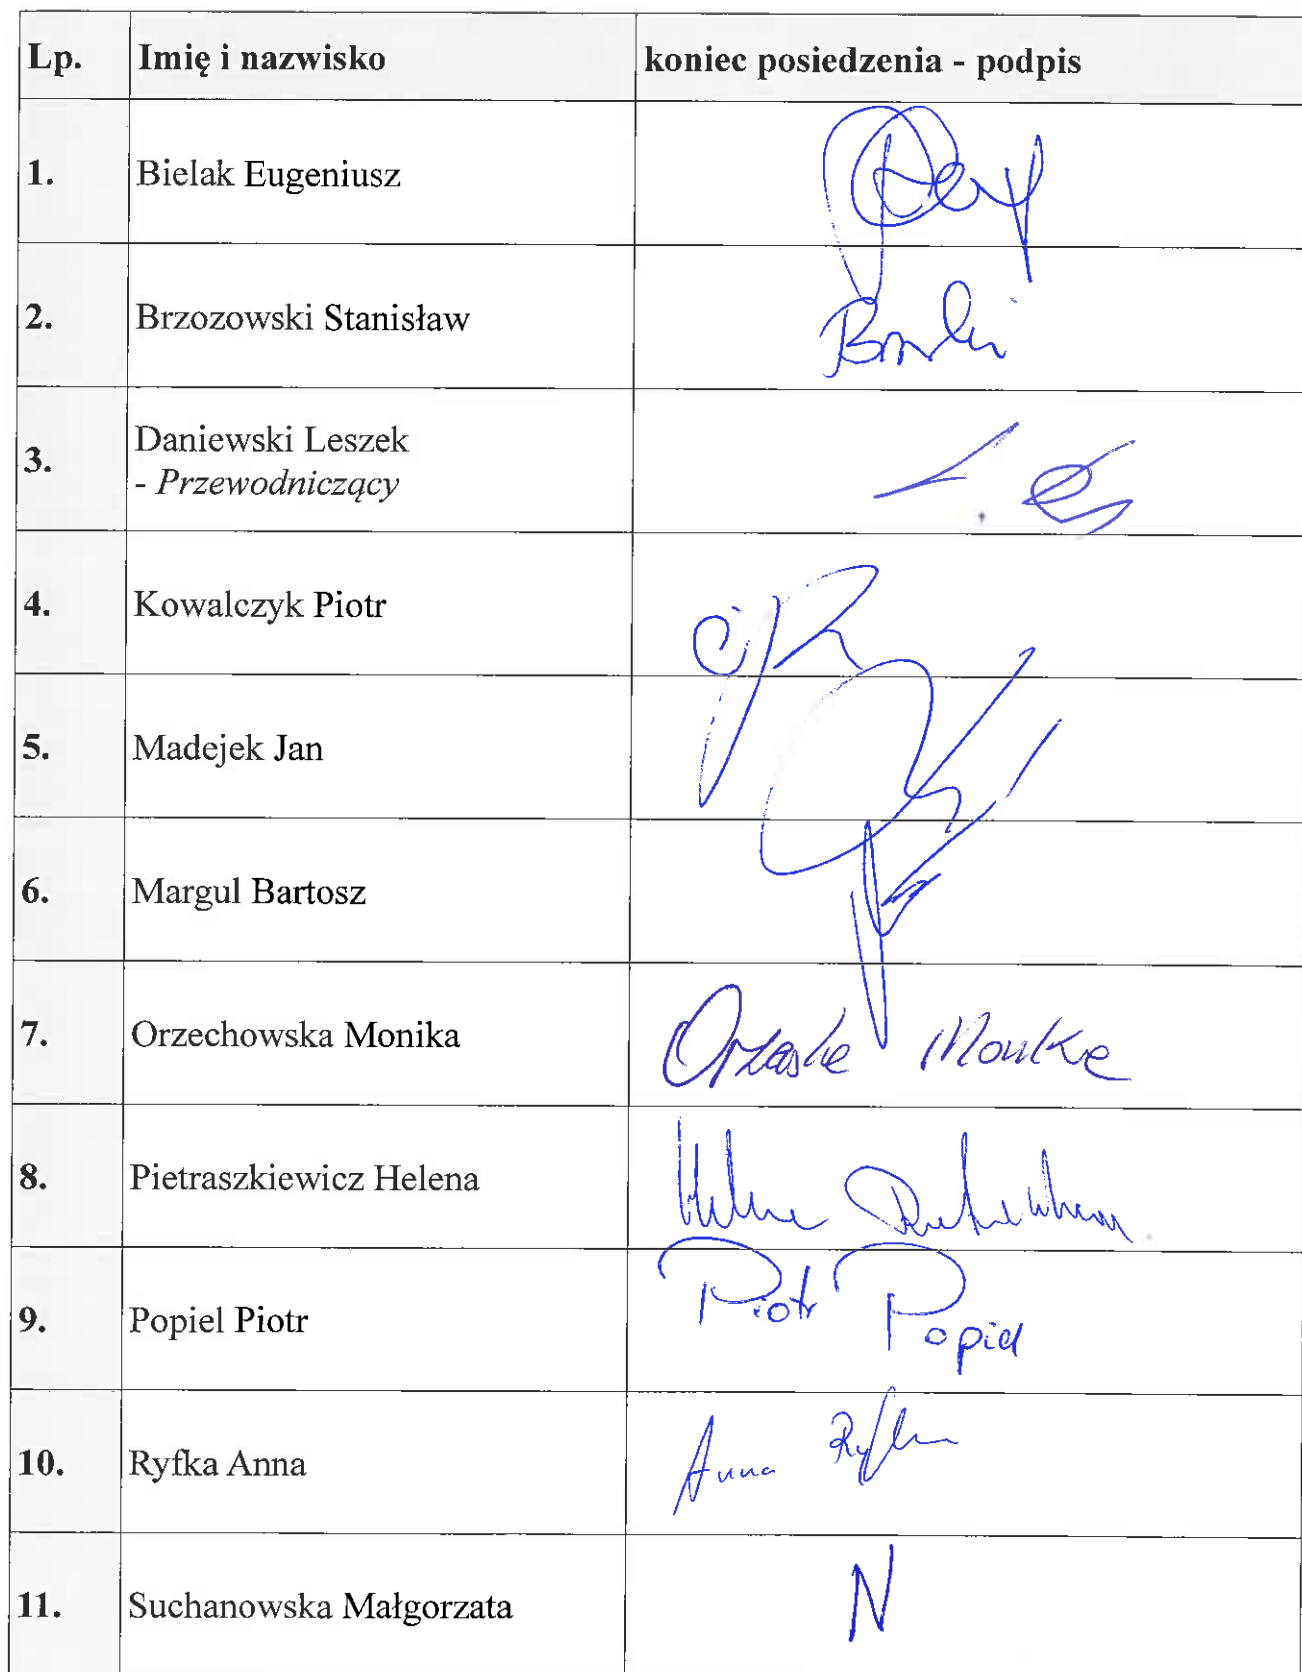 Lp. Imię i nazwisko koniec posiedzenia - podpis
1. Bielak Eugeniusz
2. Brzozowski Stanisław
3. Daniewski Leszek
- Przewodniczący
4. Kowalczyk Piotr
5. Madejek Jan
6. Margul Bartosz
7. Orzechowska Monika
8. Pietraszkiewicz Helena
9. Popiel Piotr Piotr Popiel
10. Ryfka Anna Anna Ryfka
11. Suchanowska Małgorzata N